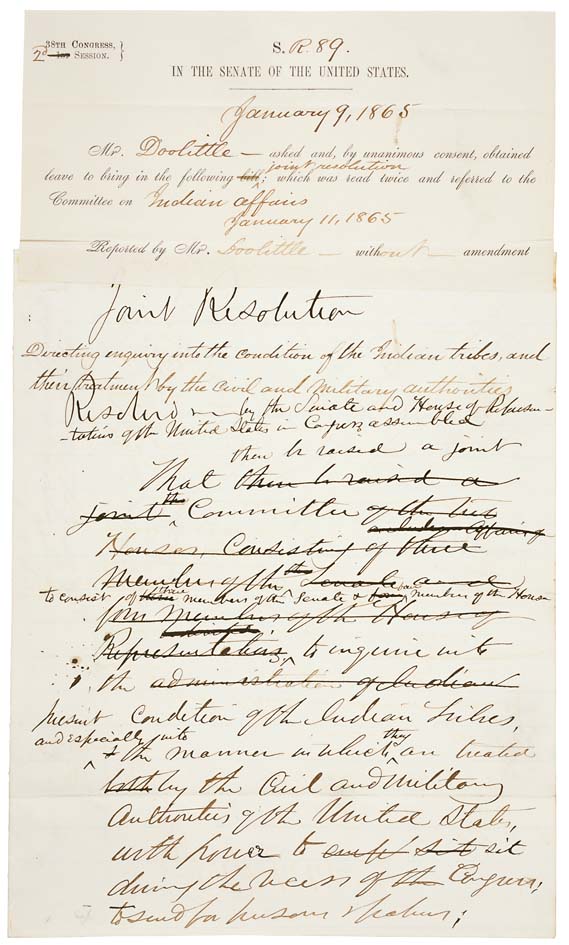 38TH CONGRESS,
2d 1st SESSION.
S. R. 89.
IN THE SENATE OF THE UNITED STATES.
January 9, 1865
Mr. Doolittle — asked and, by unanimous consent, obtained
joint resolution
leave to bring in the following bill; which was read twice and referred to the
Committee on Indian Affairs
January 11, 1865
Reported by Mr. Doolittle — without — amendment
Joint Resolution
Directing enquiry into the condition of the Indian tribes, and
their treatment by the Civil and Military authorities
Resolved by the Senate and House of Represen-
-tatives of the United States in Congress assembled
there be raised a joint
That there be raised a
joint Committee of the two
and Indian Affairs of
Houses, Consisting of three
members of the Senate and
to consist of three three members of the Senate & four members of the House
four Members of the House of
Representatives, to inquire into
the administration of Indian
present Condition of the Indian Tribes,
and especially into
& the manner in which they are treated
both by the Civil and Military
Authorities of the United States,
with power to sit sit
during the recess of the Congress;
to send for persons & papers;